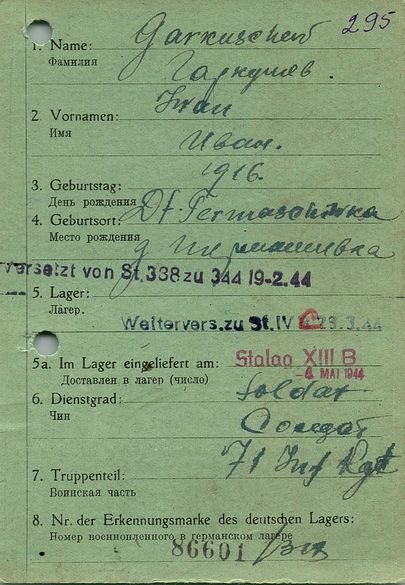 295
1. Name: Garkuschew
Фамилия Гаркушев.
2. Vornamen: Iwan
Имя Иван.
3. Geburtstag: 1916.
День рождения
4. Geburtsort: Df.
Место рождения д
versetzt von St. 338 zu 344 19-2.44
5. Lager:
Лагер.
Weitervers. zu St. IV C 29.3.44
5a. Im Lager eingeliefert am: Stalag XIII B
Доставлен в лагер (число) -4. MAI 1944
6. Dienstgrad: Soldat
Чин Солдат
7. Truppenteil: 71 Inf Rgt
Воинская часть
8. Nr. der Erkennungsmarke des deutschen Lagers:
Номер военнопленного в германском лагере
86601